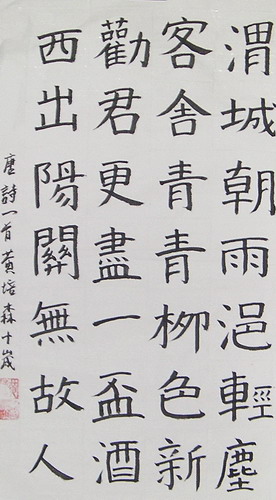 渭城朝雨浥輕塵
客舍青青柳色新
勸君更盡一盃酒
西出陽關無故人
唐詩一首 黃培森 十歲